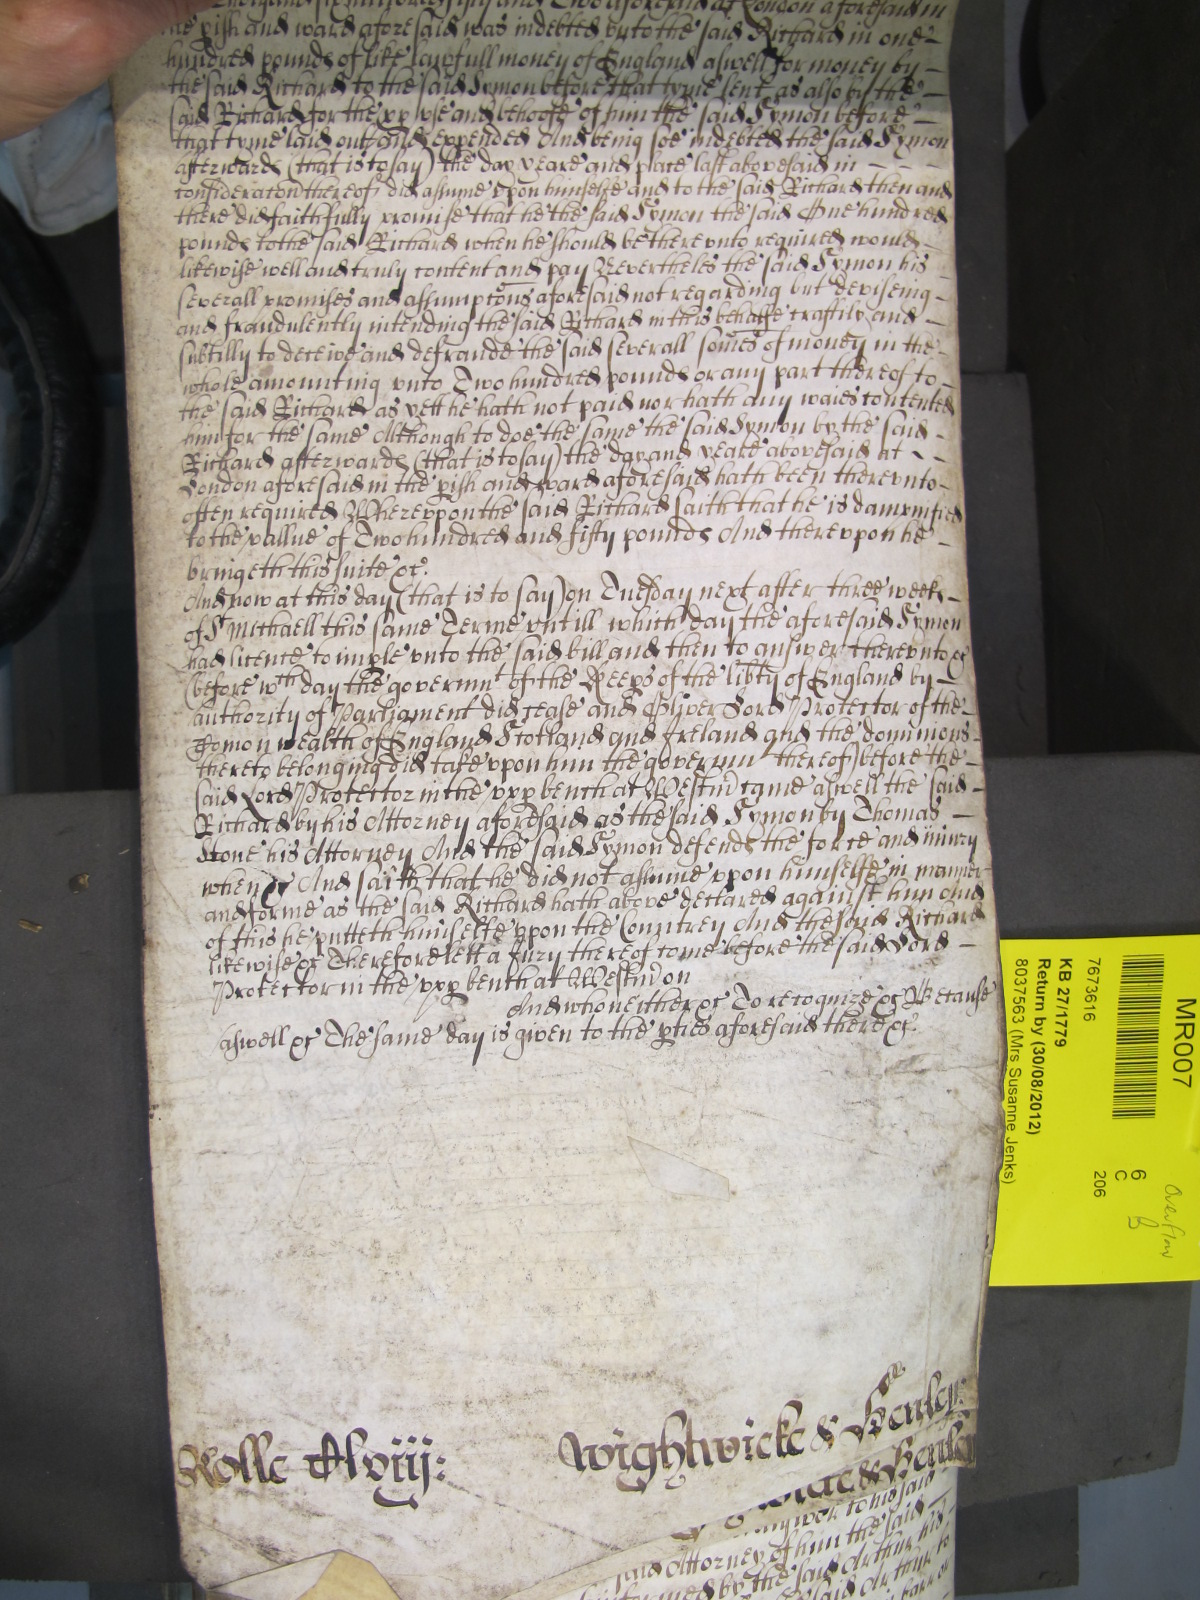 Thousand six hundred fifty and Two aforesaid at London aforesaid in
the pish and ward aforesaid was indebted vnto the said Richard in one
hundred pounds of like lawfull money of England aswell for money by
the said Richard to the said Symon before that tyme lent as also by the
said Richard for the pp vse and behoofe of him the said Symon before
that tyme laid out and expended And being soe indebted the said Symon
afterwards (that is to say) the day yeare and place last abovesaid in
consideracon thereof did assume vpon himselfe and to the said Richard then and
there did faithfully promise that he the said Symon the said One hundred
pounds to the said Richard when he should be therevnto required would
likewise well and truly content and pay Nevertheles the said Symon his
severall promises and assumptons aforesaid not regarding but deviseing
and fraudulently intending the said Richard in this behalfe craftily and
subtilly to deceive and defraude the said severall somes of money in the
whole amounting vnto Two hundred pounds or any part thereof to
the said Richard as yett he hath not paid nor hath any waies contented
him for the same Although to doe the same the said Symon by the said
Richard afterwards (that is to say) the day and yeare abovesaid at
London aforesaid in the pish and ward aforesaid hath been therevnto
often required Wherevpon the said Richard saith that he is damnified
to the vallue of Two hundred and fifty pounds And therevpon he
bringeth this suite &c.
And now at this day (that is to say) on Tuesday next after three weeks
of St Michaell this same Terme vntill which day the aforesaid Symon
had licence to imple vnto the said bill and then to answer therevnto &c
(before wth day the governmt of the Keeps of the libty of England by
authority of Parliament did cease and Oliver Lord Protector of the
Comonwealth of England Scotland and Ireland and the dominions
thereto belonging did take vpon him the governmt thereof) before the
said Lord Protector in the vpp bench at Westm came aswell the said
Richard by his Attorney aforesaid as the said Symon by Thomas
Stone his Attorney And the said Symon defends the force and iniury
when &c And saith that he did not assume vpon himselfe in manner
and forme as the said Richard hath above declared against him And
of this he putteth himselfe vpon the Countrey And the said Richard
likewise &c Therefore lett a Jury thereof come before the said Lord
Protector in the vpp bench at Westm on
And who neither &c To recognize &c Because
aswell &c The same day is given to the pties aforesaid there &c.
Rolle
Wightwicke &
said Attorney of him the said
MR007
7673616
KB 27/1779
Return by (30/08/2012)
8037563 (Mrs Susanne Jenks)
6
C
206
Overflow
B